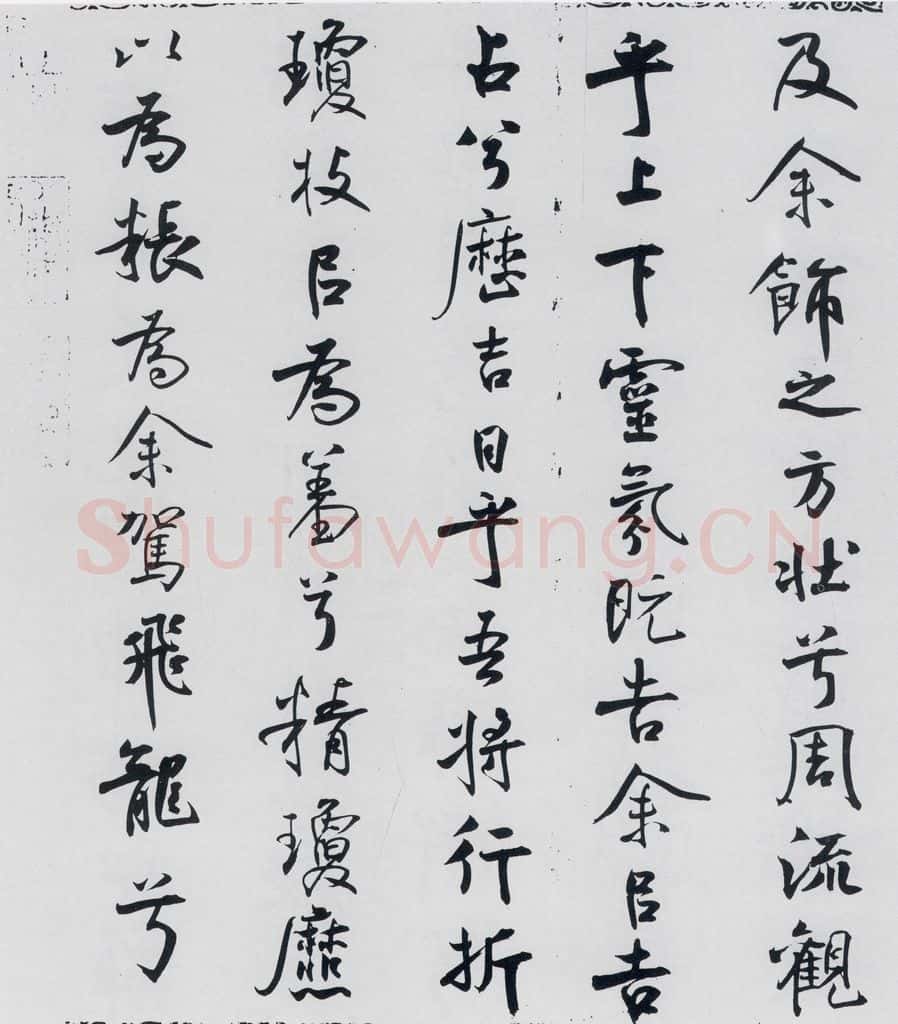 及余飾之方壯兮周流觀
乎上下靈氛既告余㠯吉
占兮歷吉日乎吾將行折
瓊枝㠯為羞兮精瓊爢
以為粻為余駕飛龍兮
Shufawang.CN